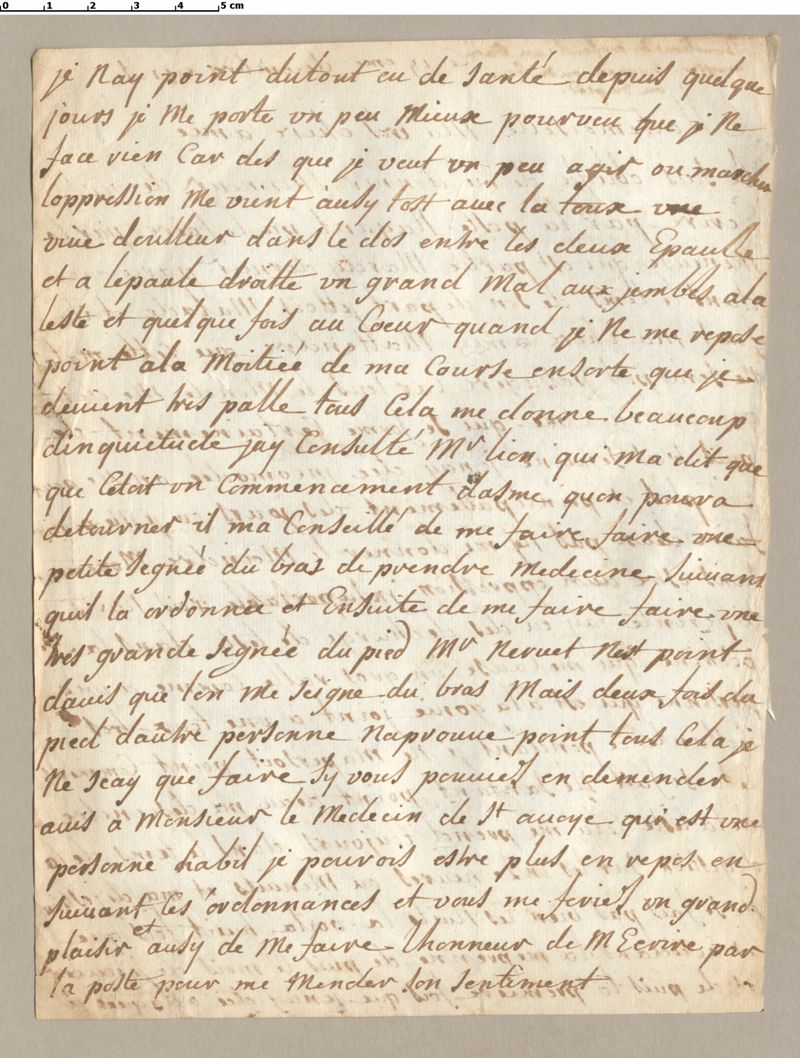 0 1 2 3 4 5 cm
je Nay point dutout eu de santé depuis quelque
jours je Me porte un peu Mieux pourveu que je Ne
face rien Car des que je veut un peu agir ou marcher
loppression Me vient ausy tost avec la toux une
vive doulleur dans le dos entre les deux Epaulle
et a lepaule droitte un grand Mal aux jembes ala
teste et quelque fois au Coeur quand je Ne me repose
point ala Moitiéé de ma Course ensorte que je
devient tres palle tous Cela me donne beaucoup
dinquietude jay Consulté Mr lion qui ma dit que
que Cetoit un Commencement dasme quon poura
detourner il ma Conseillé de me faire faire une
petite segnéé du bras de prendre medecine suivans
quil la ordonnee et Ensuite de me faire faire une
tres grande segnéé du pied Mr Nervet Nest point
davis que lon Me seigne du bras Mais deux fois du
pied dautre personne Naprouve point tous Cela je
Ne scay que faire sy vous pouvies en demender
avis a Monsieur le Medecin de st avoye qui est une
personne habil je pourois estre plus en repos en
suivant ses ordonnances et vous me feries un grand
plaisir et ausy de Me faire lhonneur de MEcrire par
la poste pour me Mender son sentiment